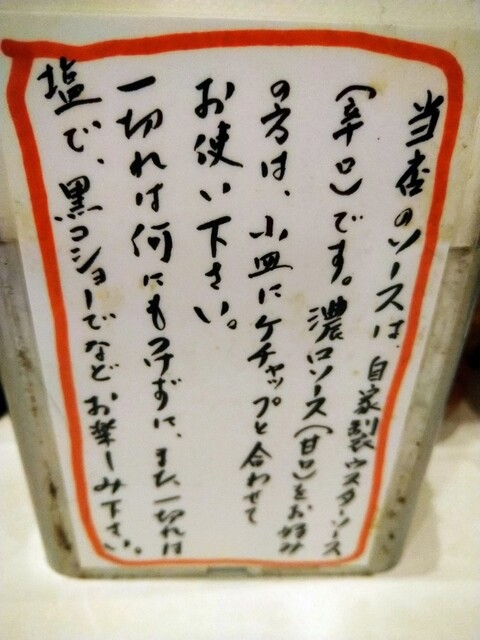 当店のソースは、自家製ウスターソース
(辛口)です。濃口ソース(甘口)をお好み
の方は、小皿にケチャップと合わせて
お使い下さい。
一切れは何にもつけずに、また、一切れは
塩で、黒コショーでなど、お楽しみ下さい。